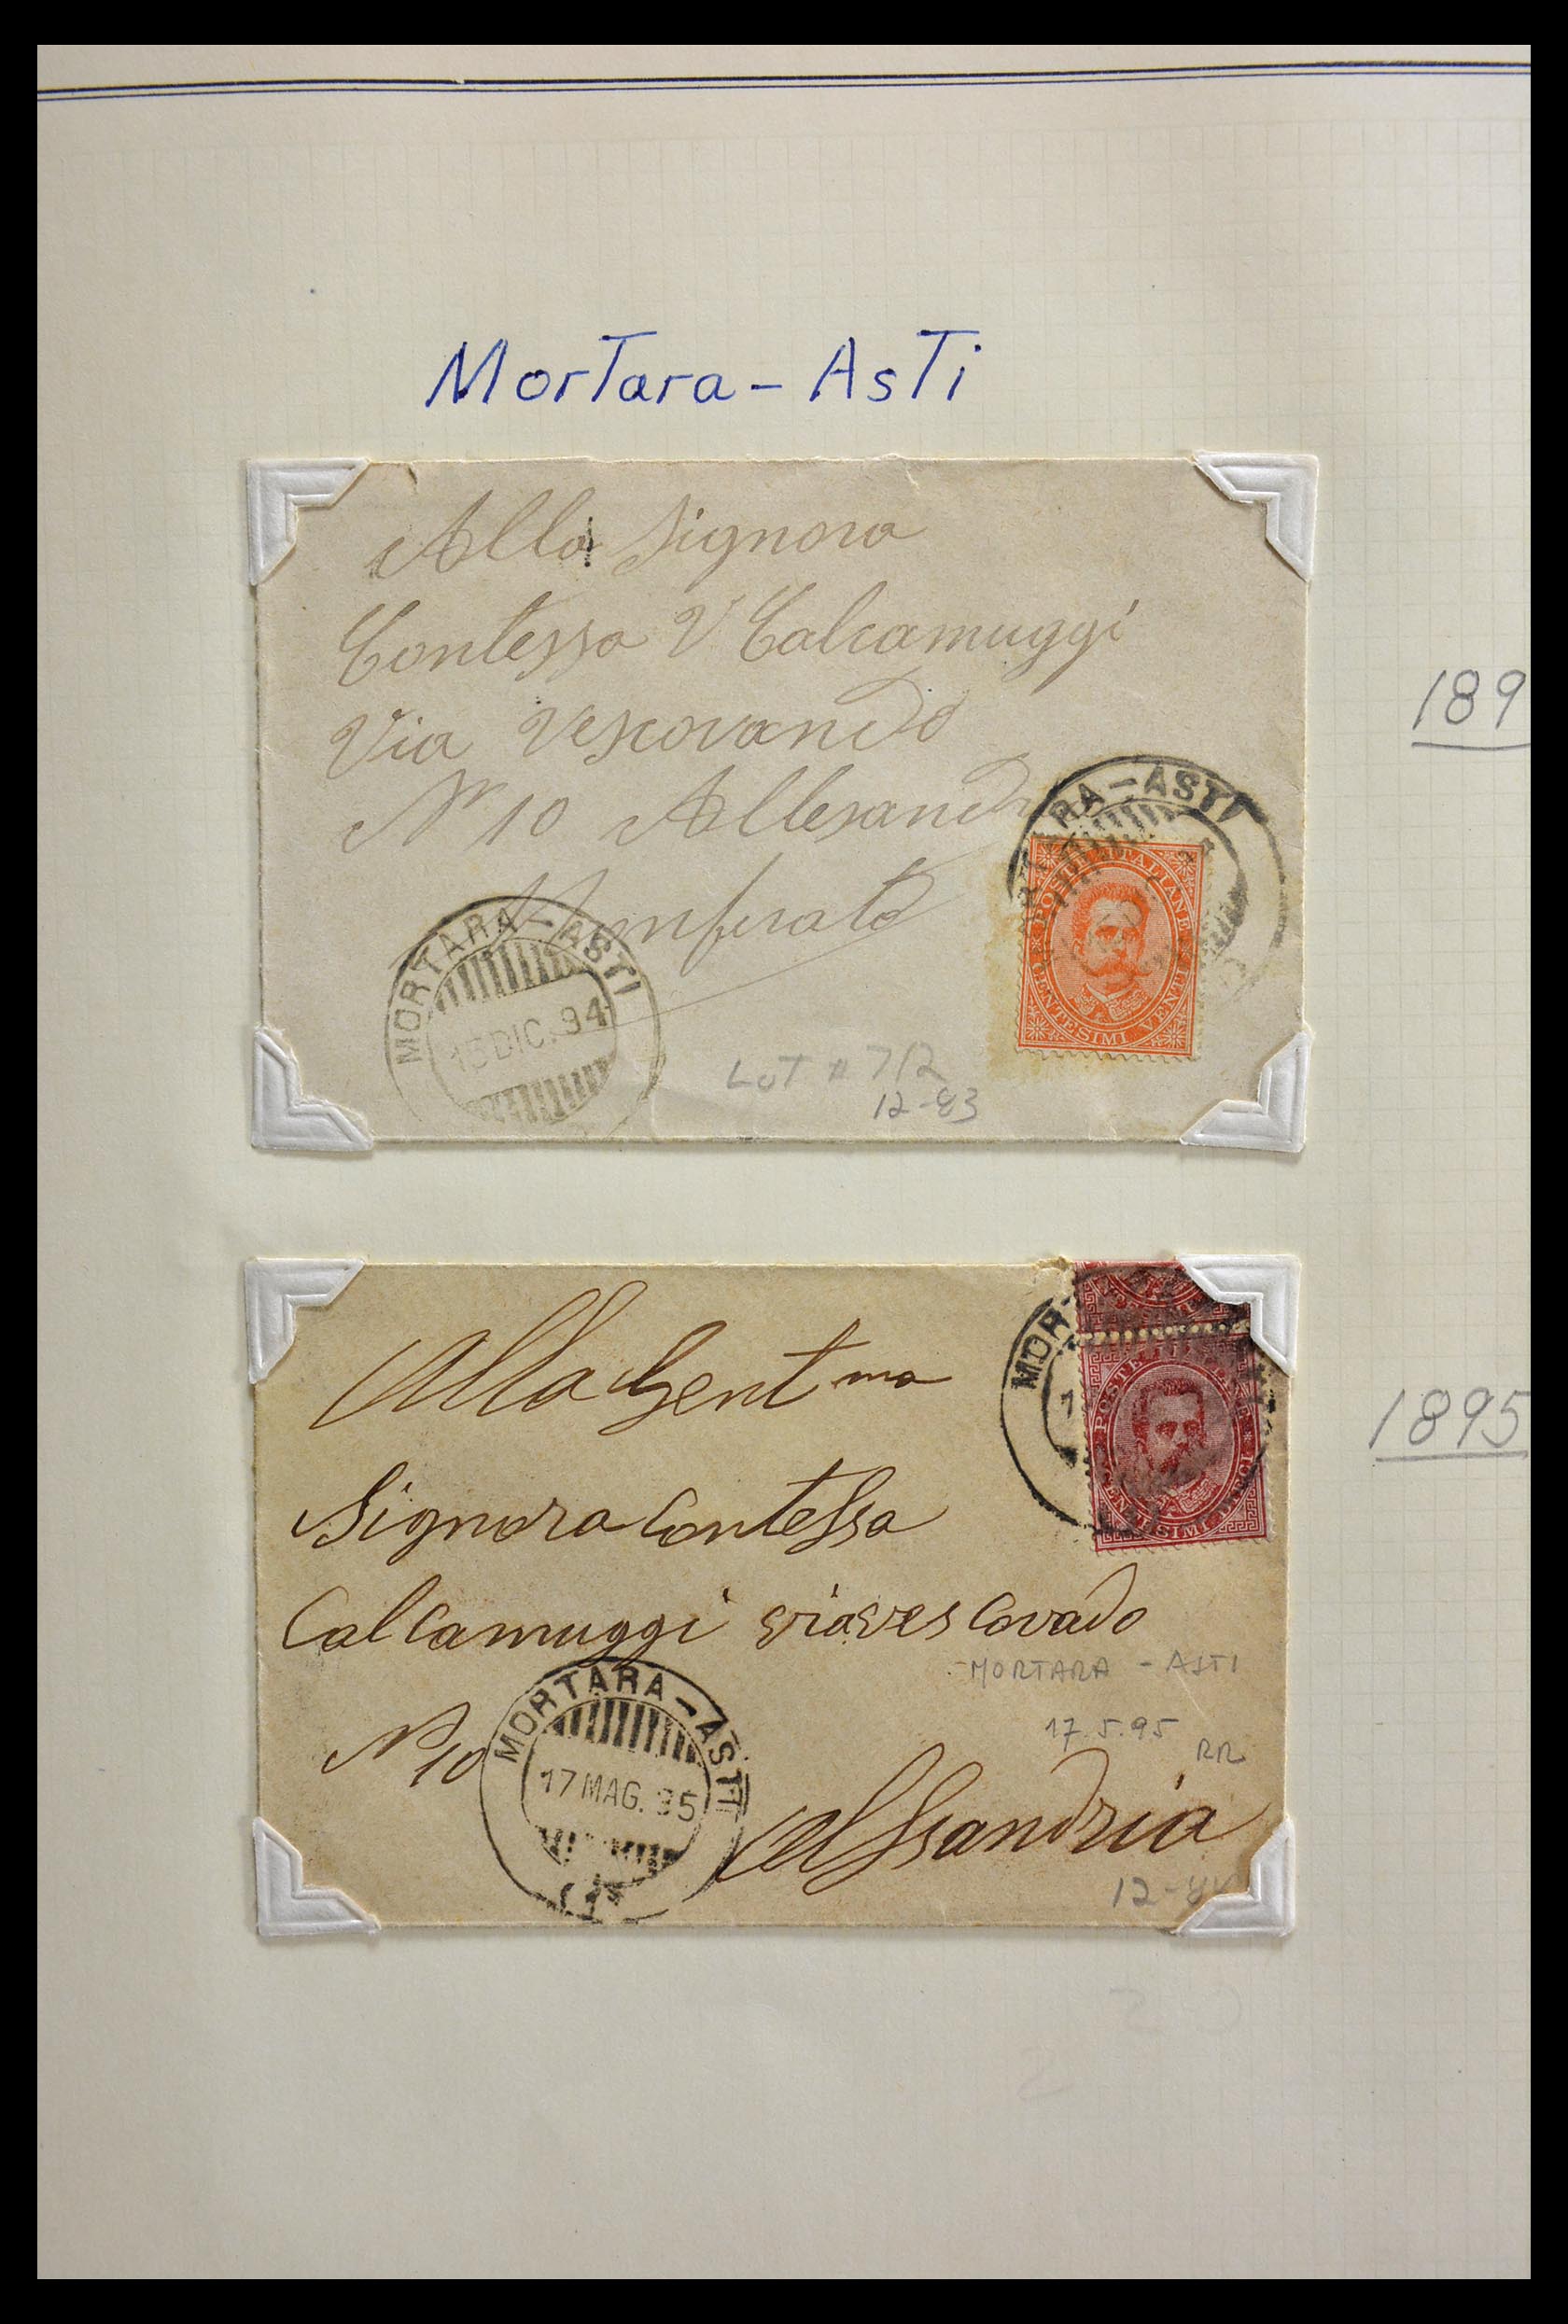 Mortara - Asti
Alla Signora
Contessa V Calcamuggi
Via Vescovando
N 10 Allesandr
Monferato
RTARA-ASTI
POSTE ITALIANE
CENTESIMI VENTI
MORTARA-ASTI
DIC. 94
LOT # 712
12-83
189
Alla Gent ma
Signora Contessa
Calcamuggi via vescovado
N 10
Alssandria
MOR
POSTE
MORTARA-ASTI
17 MAG. 95
MORTARA - ASTI
17.5.95
RR
12-
1895